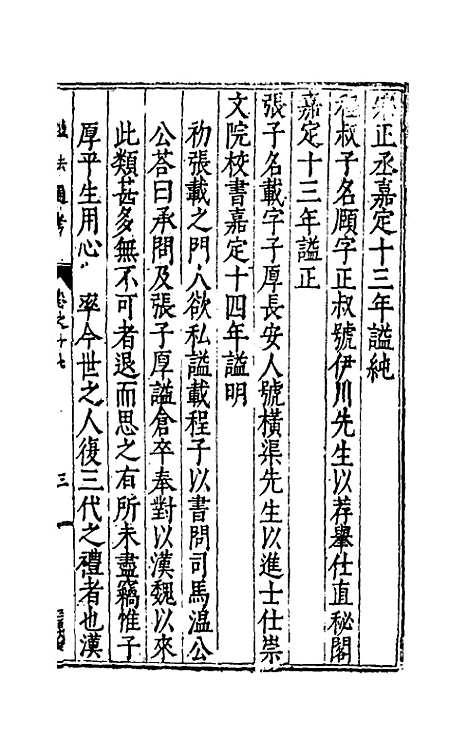 宗正丞嘉定十三年謚純
程叔子名頤字正叔號伊川先生以荐舉仕直秘閣
嘉定十三年謚正
張子名載字子厚長安人號橫渠先生以進士仕崇
文院校書嘉定十四年謚明
初張載之門人欲私謚載程子以書問司馬温公
公荅曰承問及張子厚謚倉卒奉對以漢魏以來
此類甚多無不可者退而思之有所未盡竊惟子
厚平生用心 率今世之人復三代之禮者也漢
謚法通考 卷之十七 三